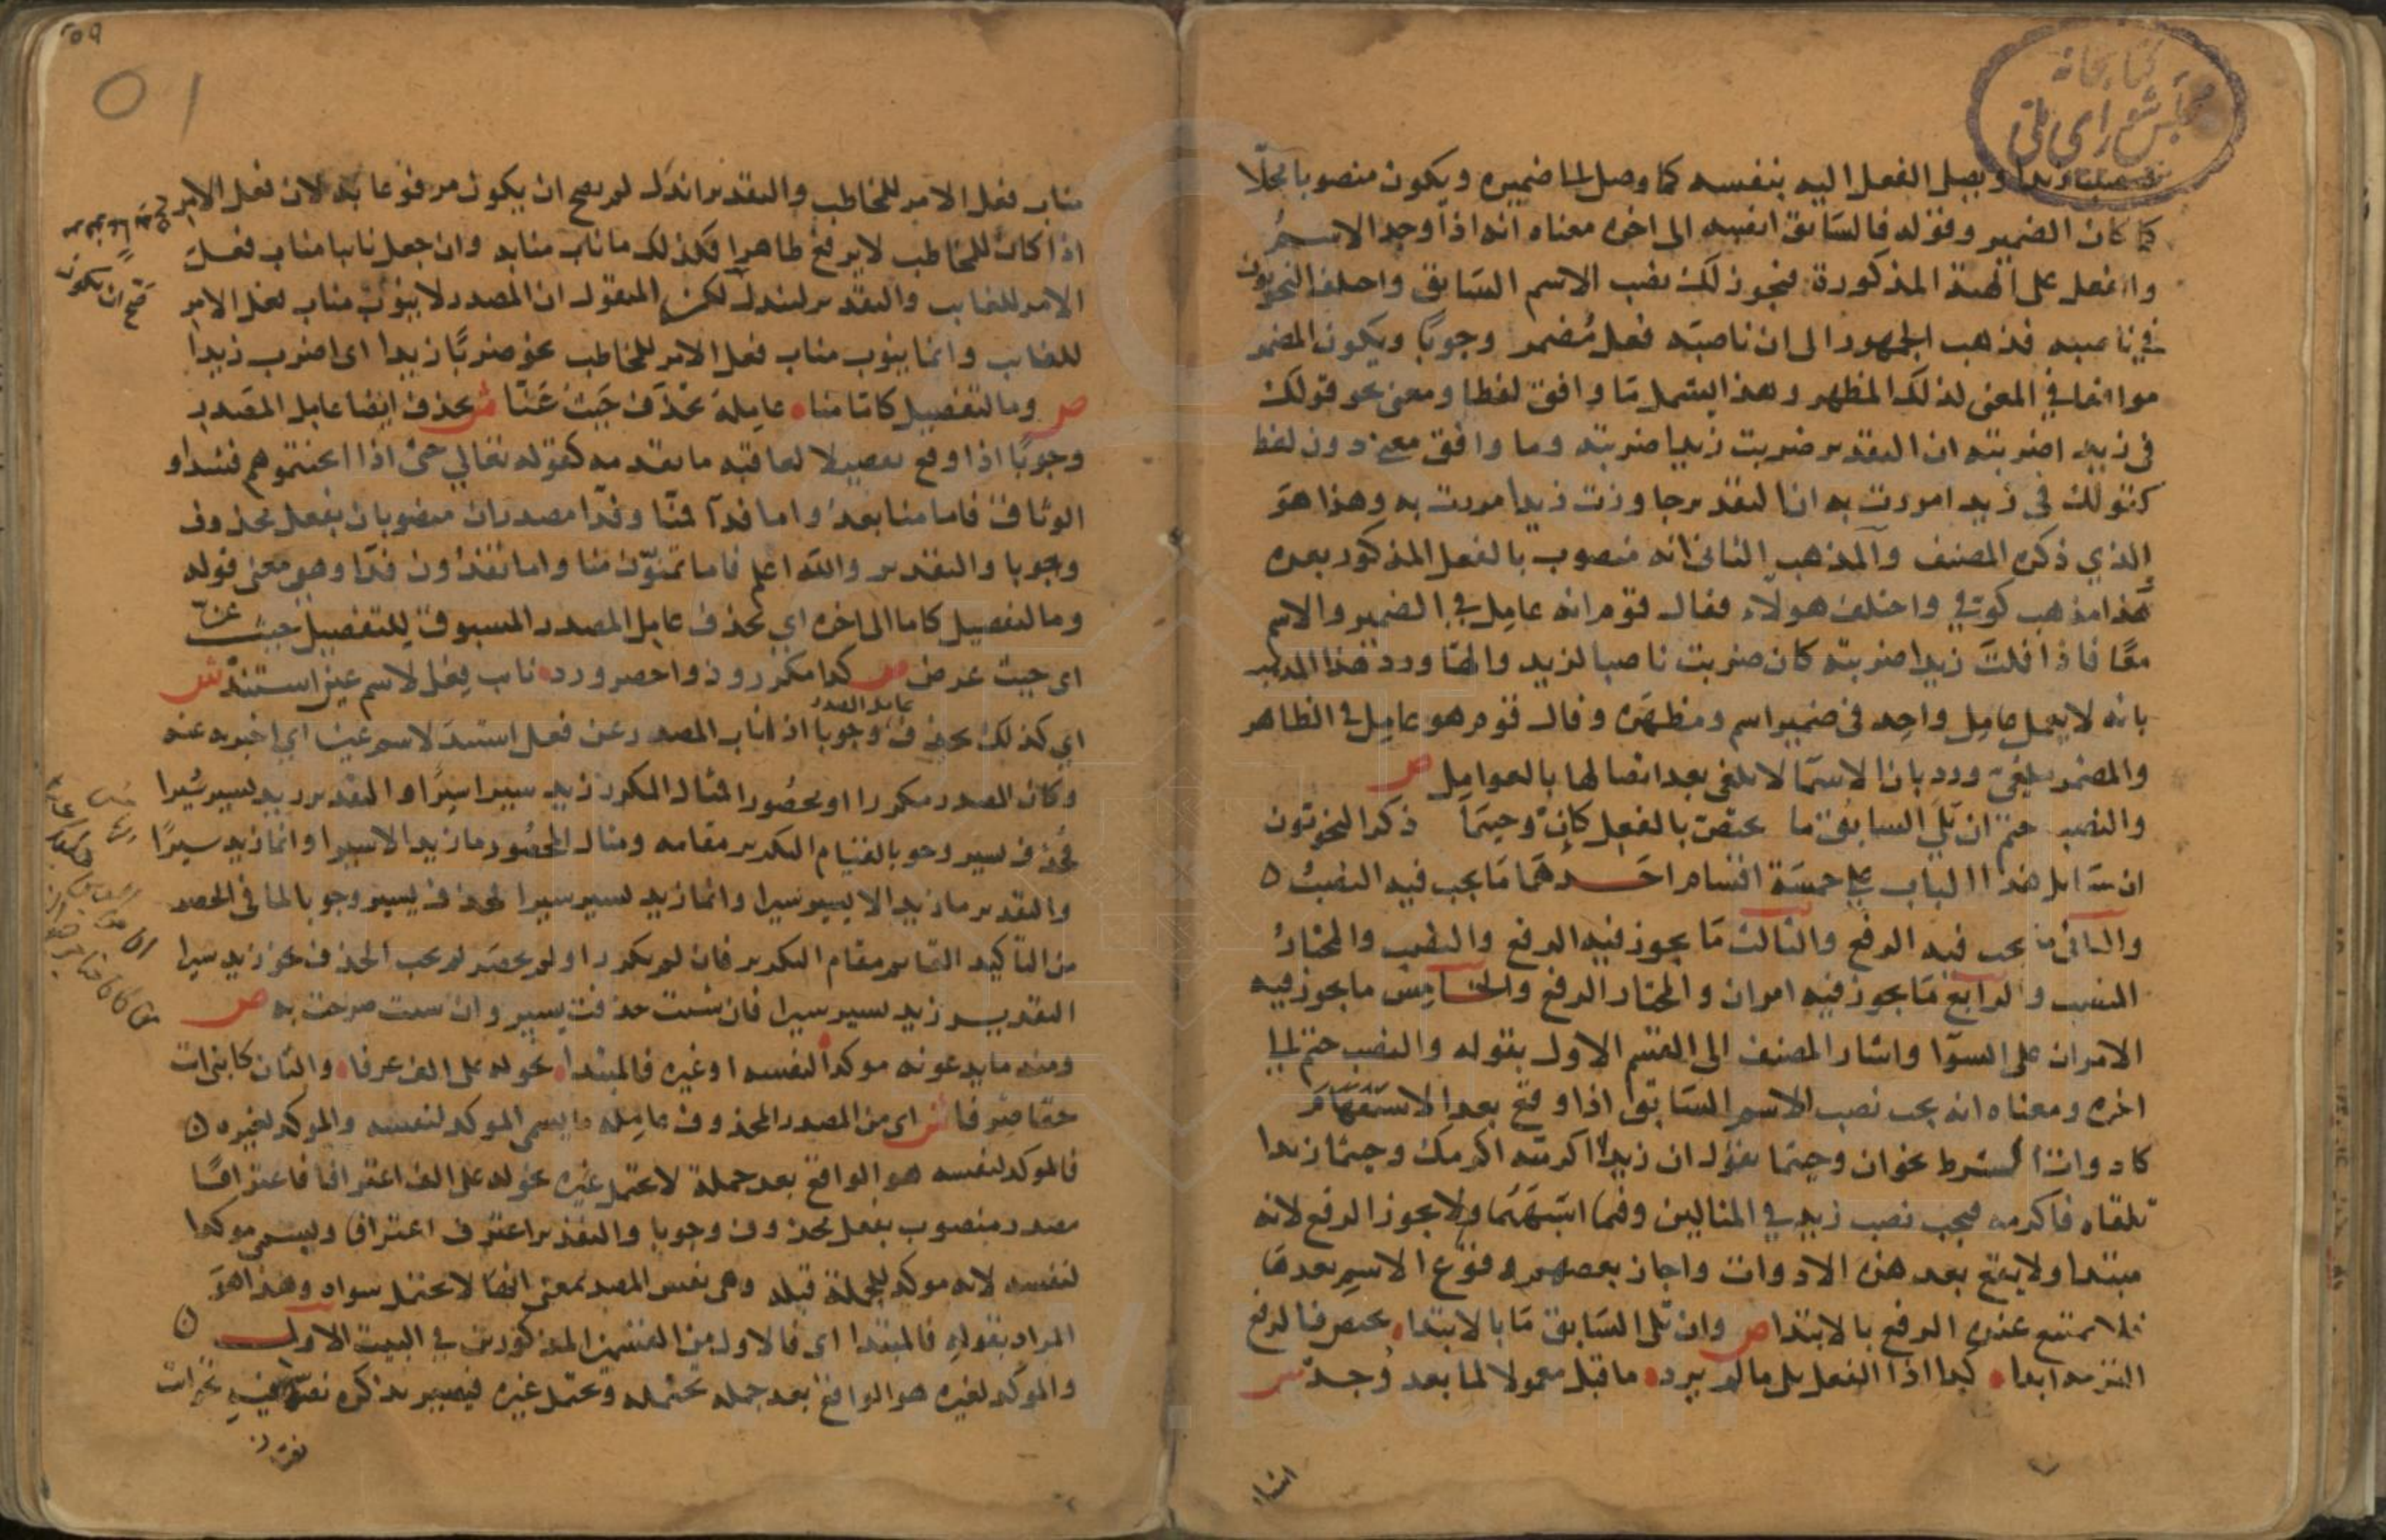 كتابخانه
مجلس شورای ملی
ويصل الفعل اليه بنفسه كما وصل الى ضميره ويكون منصوبا محلا
كما كان الضمير وقوله فالسابق انصبه الى اخره معناه انه اذا وجد الاسم
والفعل على الهيئة المذكورة فيجوز لك نصب الاسم السابق واختلف النحويون
في ناصبه فذهب الجمهور الى ان ناصبه فعل مضمر وجوبا ويكون المضمر
موافقا في المعنى لذلك المظهر وهذا يشمل ما وافق لفظا ومعنى نحو قولك
في زيدا ضربته ان التقدير ضربت زيدا ضربته وما وافق معنى دون لفظ
كقولك في زيدا مررت به ان التقدير جاوزت زيدا مررت به وهذا هو
الذي ذكره المصنف والمذهب الثاني انه منصوب بالفعل المذكور بعده
هذا مذهب كوفي واختلف هولاء فقال قوم انه عامل في الضمير والاسم
معا فاذا قلت زيدا ضربته كان ضربت ناصبا لزيد والها ورد هذا المذهب
بانه لا يعمل عامل واحد في ضمير اسم ومظهره وقال قوم هو عامل في الظاهر
والمضمر ملغى ورد بان الاسما لا تلغى بعد اتصالها بالعوامل ص
والنصب حتم ان تلى السابق ما يختص بالفعل كان وحيثما ذكر النحويون
ان مسائل هذا الباب على خمسة اقسام احدهما ما يجب فيه النصب ه
والثاني ما يجب فيه الرفع والثالث ما يجوز فيه الرفع والنصب والمختار
النصب والرابع ما يجوز فيه امران والمختار الرفع والخامس ما يجوز فيه
الامران على السوا واشار المصنف الى القسم الاول بقوله والنصب حتم الى
اخره ومعناه انه يجب نصب الاسم السابق اذا وقع بعد الاستفهام
كادوات الشرط نحو ان وحيثما نقول ان زيدا اكرمته اكرمك وحيثما زيدا
تلقاه فاكرمه فيجب نصب زيد في المثالين وفيما اشبههما ولا يجوز الرفع لانه
مبتدا ولا يقع بعد هذه الادوات واجاز بعضهم وقوع الاسم بعدها
فلا يمتنع عنده الرفع بالابتدا ص وان تلى السابق ما بالابتدا يختص فالرفع
التزمه ابدا كذا اذا الفعل تلى ما لم يرد ما قبل معمولا لما بعد وجد ش
مناب فعل الامر للمخاطب والتقدير اندل لم يصح ان يكون مرفوعا به لان فعل الامر
اذا كان للمخاطب لا يرفع ظاهرا فكذلك ما ناب منابه وان جعل نايبا مناب فعل
الامر للغايب والتقدير ليندل لكن المنقول ان المصدر لا ينوب مناب فعل الامر
للغايب وانما ينوب مناب فعل الامر للمخاطب نحو ضربا زيدا اى اضرب زيدا
ص وما لتفصيل كاما منا عامله يحذف حيث عنا ش يحذف ايضا عامل المصدر
وجوبا اذا وقع تفصيلا لعاقبة ما تقدمه كقوله تعالى حتى اذا اثخنتموهم فشدوا
الوثاق فاما منا بعد واما فدآ فمنا وفدا مصدران منصوبان بفعل محذوف
وجوبا والتقدير والله اعلم فاما تمنون منا واما تفدون فدآ وهو معنى قوله
وما لتفصيل كاما الى اخره اي يحذف عامل المصدر المسبوق للتفصيل حيث عن
اى حيث عرض ص كذا مكرر وذو حصر ورد ناب فعل لاسم عين استند ش
عامل المصدر
اي كذلك يحذف وجوبا اذا ناب المصدر عن فعل استند لاسم عين اي اخبر به عنه
وكان المصدر مكررا او محصورا مثال المكرر زيد سيرا سيرا والتقدير زيد يسير سيرا
فحذف يسير وجوبا لقيام التكرير مقامه ومثال المحصور ما زيد الا سيرا وانما زيد سيرا
والتقدير ما زيد الا يسير سيرا وانما زيد يسير سيرا فحذف يسير وجوبا لما في الحصر
من التاكيد القايم مقام التكرير فان لم يكرر او لم يحصر لم يجب الحذف نحو زيد سيرا
التقدير زيد يسير سيرا فان شئت حذفت يسير وان شئت صرحت به ص
ومنه ما يدعونه موكدا لنفسه او غيره فالمبتدا نحو له على الف عرفا والثان كابنى انت
حقا صرفا ش اى من المصدر المحذوف عامله ما يسمى الموكد لنفسه والموكد لغيره ه
فالموكد لنفسه هو الواقع بعد جملة لا تحتمل غيره نحو له على الف اعترافا فاعترافا
مصدر منصوب بفعل محذوف وجوبا والتقدير اعترف اعترافا ويسمى موكدا
لنفسه لانه موكد للجملة قبله وهى نفس المصدر بمعنى انها لا تحتمل سواه وهذا هو
المراد بقوله فالمبتدا اى فالاول من القسمين المذكورين في البيت الاول ه
والموكد لغيره هو الواقع بعد جملة تحتمله وتحتمل غيره فيصير بذكره نصا فيه نحو انت